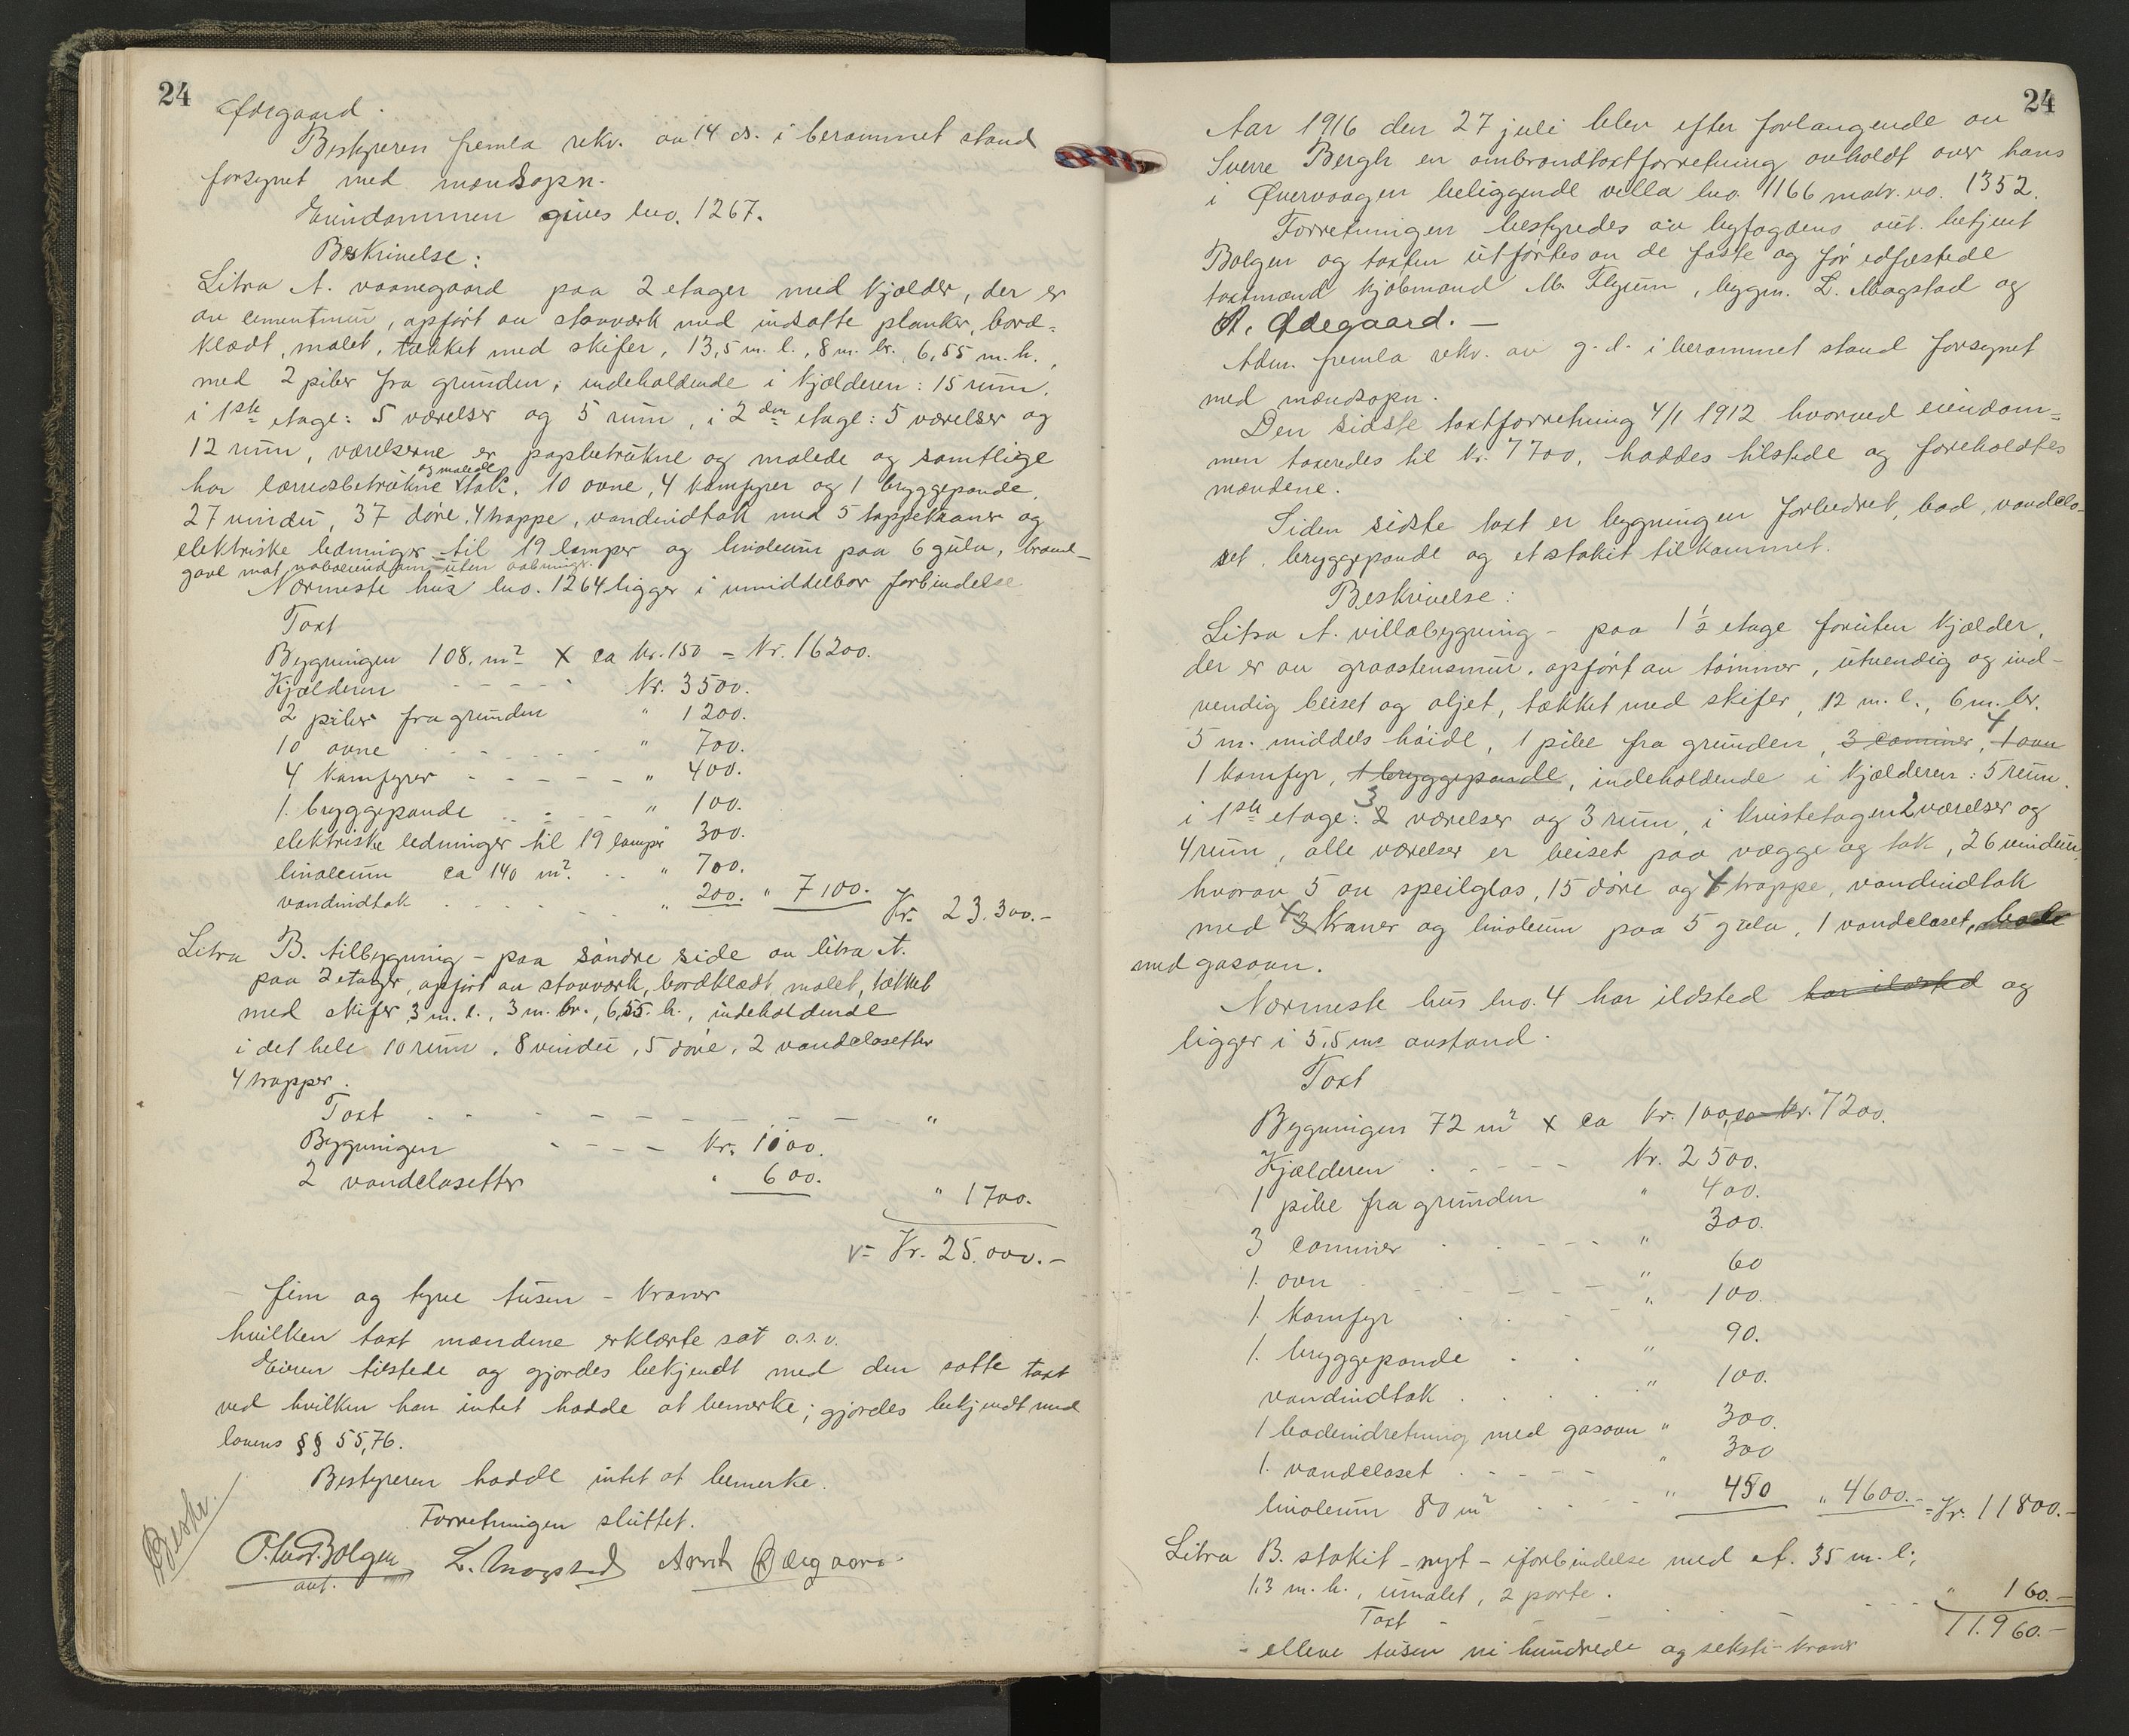 24
Ødegaard.
Bestyreren fremla rekv. av 14 ds. i berammet stand
forsynet med mændsopn.
Eiendommen gives lno. 1267.
Beskrivelse:
Litra A. vaanegaard paa 2 etager med kjælder, der er
av cementmur, opført av stavværk med indsatte planker, bord-
klædt, malet, tækket med skifer, 13,5 m. l., 8 m. br. 6,55 m. h.,
med 2 piber fra grunden; indeholdende i kjælderen: 15 rum,
i 1ste etage: 5 værelser og 5 rum, i 2den etage: 5 værelser og
12 rum, værelserne er papbetrukne og malede og samtlige
har lærredsbetrukne og malede tak, 10 ovne, 4 kamfyrer og 1 bryggepande,
27 vinduer, 37 døre, 4 trappe, vandindtak med 5 tappekraner og
elektriske ledninger til 19 lamper og linoleum paa 6 gulv, brand-
gavl mot naboeiendom uten aabninger.
Nærmeste hus lno. 1264 ligger i umiddelbar forbindelse
Taxt
Bygningen 108. m² x ca kr. 150 = Kr. 16200.
Kjælderen - - - - Kr. 3500.
2 piber fra grunden " 1200.
10 ovne - - - - " 700.
4 kamfyrer - - - - - " 400.
1. bryggepande - - - " 100.
elektriske ledninger til 19 lamper " 300.
linoleum ca 140 m². - - " 700.
vandindtak - - - - " 200. " 7100. Kr. 23.300.-
Litra B. tilbygning - paa søndre side av litra A.
paa 2 etager, opført av stavværk, bordklædt, malet, tækket
med skifer 3 m. l., 3 m. br., 6,55. h., indeholdende
i det hele 10 rum, 8 vinduer, 5 døre, 2 vandclosetter
4 trapper.
Taxt - - - - - - - - - "
Bygningen - - - Kr. 1100.
2 vandclosetter " 600.
" 1700.
Kr. 25.000.-
- fem og tyve tusen - kroner
hvilken taxt mændene erklærte sat o.s.v.
Eieren tilstede og gjordes bekjendt med den satte taxt
ved hvilken han intet hadde at bemerke; gjordes bekjendt med
lovens §§ 55,76.
Bestyreren hadde intet at bemerke.
Forretningen sluttet.
Beskr.
Bolgen L. Magstad Ødegaard
aut.
24
Aar 1916 den 27 juli blev efter forlangende av
Sverre Bergh en ombrandtaxtforretning avholdt over hans
i Øvervaagen beliggende villa lno. 1166 matr. no. 1352.
Forretningen bestyredes av byfogdens aut. betjent
Bolgen og taxten utførtes av de faste og før edfæstede
taxtmænd kjøbmand M. Flyum, bygm. L. Magstad og
A. Ødegaard. -
Adm. fremla rekv. av g.d. i berammet stand forsynet
med mændsopn.
Den sidste taxtforretning 4/1 1912 hvorved eiendom-
men taxeredes til kr. 7700, haddes tilstede og foreholdtes
mændene.
Siden sidste taxt er bygningen forbedret, bad, vandclo-
set, bryggepande og et stakit tilkommet.
Beskrivelse:
Litra A. villabygning - paa 1½ etage foruten kjælder,
der er av graastensmur, opført av tømmer, utvendig og ind-
vendig beiset og oljet, tækket med skifer, 12 m. l., 6 m. br.
5 m. middels høide, 1 pibe fra grunden, 3 caminer, 4 1 ovn
1 kamfyr, 1 bryggepande, indeholdende i kjælderen: 5 rum.
i 1ste etage: 3 2 værelser og 3 rum, i kvistetagen 2 værelser og
4 rum, alle værelser er beiset paa vægge og tak, 26 vinduer,
hvorav 5 av speilglas, 15 døre og 4 trappe, vandindtak
med 4 3 kraner og linoleum paa 5 gulv, 1 vandcloset, bade
med gasovn.
Nærmeste hus lno. 4 har ildsted har ildsted og
ligger i 5,5 ms avstand.
Taxt
Bygningen 72 m² x ca kr. 100, ca kr. 7200.
Kjælderen - - - - Kr. 2500.
1 pibe fra grunden " 400.
3 caminer - - - - " 300.
1. ovn - - - - - " 60
1. kamfyr - - - " 100.
1. bryggepande - - " 90.
vandindtak - - - " 100.
1 badeindretning med gasovn " 300.
1. vandcloset - - - - " 300
linoleum 80 m² - - - " 450 " 4600.- = Kr. 11800.-
Litra B. stakit - nyt - i forbindelse med A. 35 m. l.,
1,3 m. h., umalet, 2 porte.
Taxt - - - - " 160.-
11.960.-
- elleve tusen ni hundrede og seksti - kroner